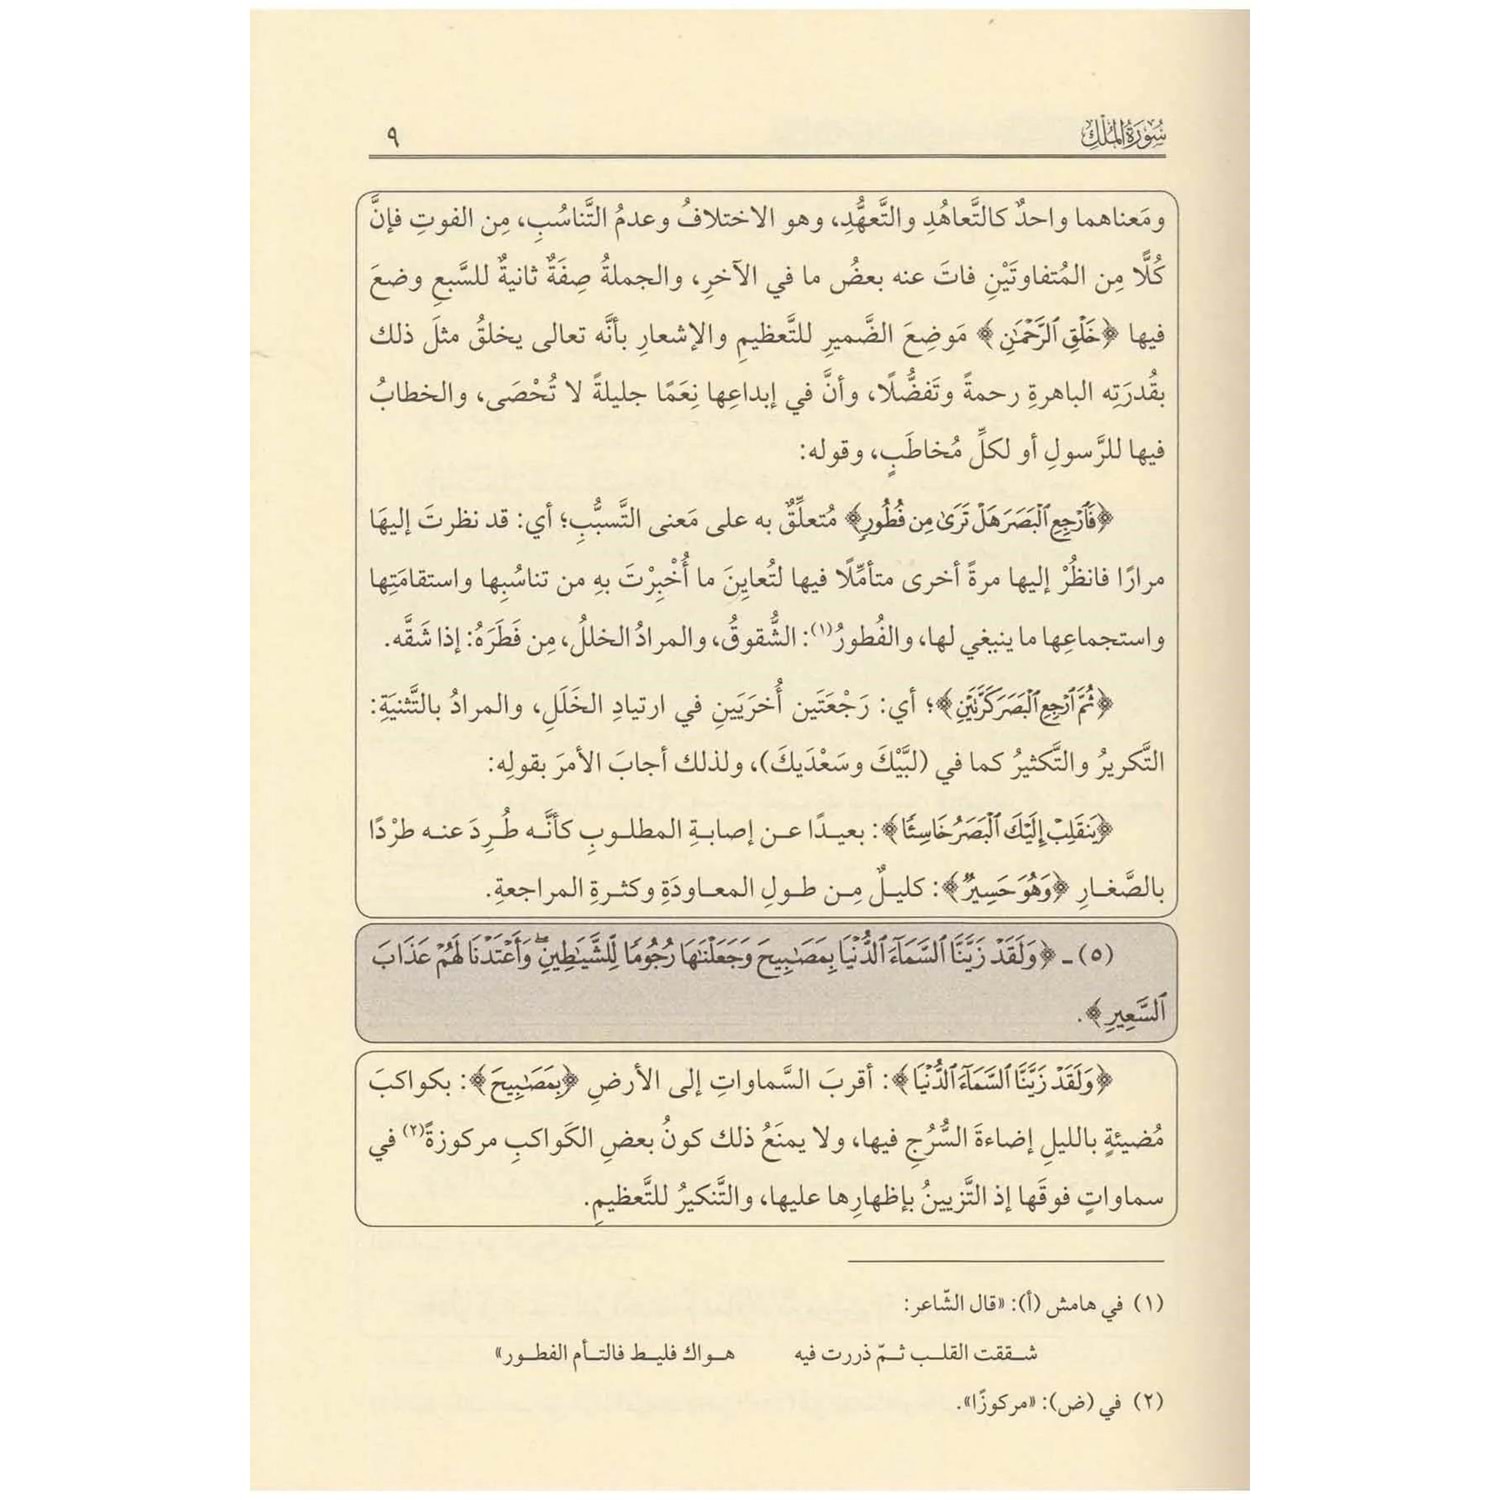 سُورَةُ المُلْكِ ٩
ومَعناهما واحدٌ كالتَّعاهُدِ والتَّعهُّدِ، وهو الاختلافُ وعدمُ التَّناسُبِ، مِن الفوتِ فإنَّ
كُلًّا مِن المُتفاوتَيْنِ فاتَ عنه بعضُ ما في الآخرِ، والجملةُ صِفَةٌ ثانيةٌ للسَّبعِ وضعَ
فيها ﴿خَلْقِ ٱلرَّحْمَٰنِ﴾ مَوضِعَ الضَّميرِ للتَّعظيمِ والإشعارِ بأنَّه تعالى يخلقُ مثلَ ذلك
بقُدرَتِه الباهرةِ رحمةً وتَفضُّلًا، وأنَّ في إبداعِها نِعَمًا جليلةً لا تُحْصَى، والخطابُ
فيها للرَّسولِ أو لكلِّ مُخاطَبٍ، وقوله:
﴿فَٱرْجِعِ ٱلْبَصَرَ هَلْ تَرَىٰ مِن فُطُورٍ﴾ مُتعلِّقٌ به على مَعنى التَّسبُّبِ؛ أي: قد نظرتَ إليهَا
مرارًا فانظُرْ إليها مرةً أخرى متأمِّلًا فيها لتُعاينَ ما أُخْبِرْتَ بهِ من تناسُبِها واستقامَتِها
واستجماعِها ما ينبغي لها، والفُطورُ(١): الشُّقوقُ، والمرادُ الخللُ، مِن فَطَرَهُ: إذا شَقَّه.
﴿ثُمَّ ٱرْجِعِ ٱلْبَصَرَ كَرَّتَيْنِ﴾؛ أي: رَجْعَتَين أُخرَيَينِ في ارتيادِ الخَلَلِ، والمرادُ بالتَّثنيَةِ:
التَّكريرُ والتَّكثيرُ كما في (لبَّيْكَ وسَعْدَيكَ)، ولذلك أجابَ الأمرَ بقولِه:
﴿يَنقَلِبْ إِلَيْكَ ٱلْبَصَرُ خَاسِئًا﴾: بعيدًا عن إصابةِ المطلوبِ كأنَّه طُرِدَ عنه طرْدًا
بالصَّغارِ ﴿وَهُوَ حَسِيرٌ﴾: كليلٌ مِن طولِ المعاودَةِ وكثرةِ المراجعةِ.
(٥) - ﴿وَلَقَدْ زَيَّنَّا ٱلسَّمَآءَ ٱلدُّنْيَا بِمَصَٰبِيحَ وَجَعَلْنَٰهَا رُجُومًا لِّلشَّيَٰطِينِ ۖ وَأَعْتَدْنَا لَهُمْ عَذَابَ
ٱلسَّعِيرِ﴾.
﴿وَلَقَدْ زَيَّنَّا ٱلسَّمَآءَ ٱلدُّنْيَا﴾: أقربَ السَّماواتِ إلى الأرضِ ﴿بِمَصَٰبِيحَ﴾: بكواكبَ
مُضيئةٍ بالليلِ إضاءةَ السُّرُجِ فيها، ولا يمنَعُ ذلك كونُ بعضِ الكَواكبِ مركوزةً(٢) في
سماواتٍ فوقَها إذ التَّزيينُ بإظهارِها عليها، والتَّنكيرُ للتَّعظيمِ.
(١) في هامش (أ): «قال الشّاعر:
شققت القلب ثمّ ذررت فيه هواك فليط فالتأم الفطور»
(٢) في (ض): «مركوزًا».